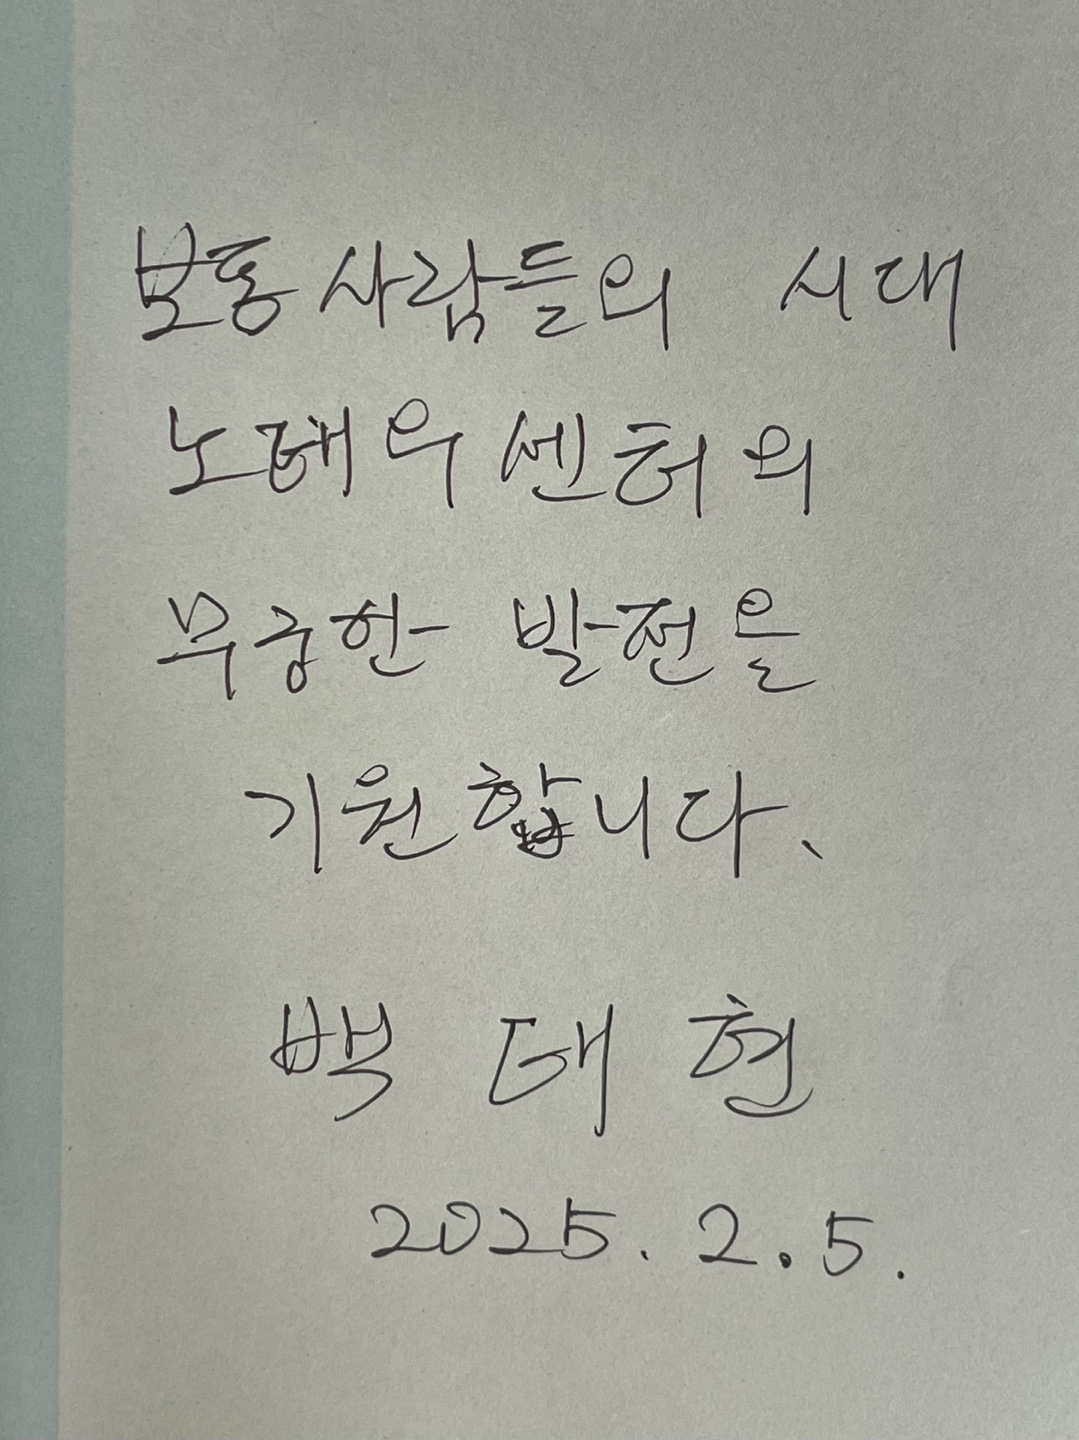 보통사람들의 시대
노태우센터의
무궁한 발전을
기원합니다.
백태현
2025. 2. 5.